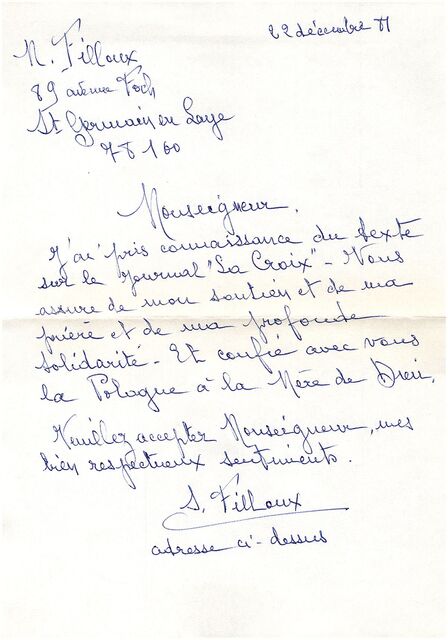 22 décembre 81
N. Filloux
89 avenue Foch
St Germain en Laye
78100
Monseigneur,
J'ai pris connaissance du texte
sur le journal "La Croix" - Vous
assure de mon soutien et de ma
prière et de ma profonde
solidarité - Et confie avec vous
la Pologne à la Mère de Dieu.
Veuillez accepter Monseigneur, mes
bien respectueux sentiments.
S. Filloux
adresse ci-dessus